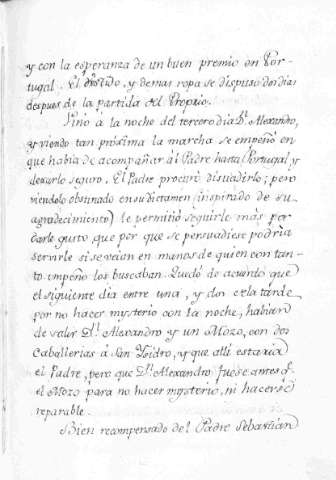 y con la esperanza de un buen premio en Por-
tugal. El vestido, y demas ropa se dispuso dos dias
despues de la partida del Proprio.
Vino á la noche del tercero dia Dn. Alexandro,
y viendo tan próxîma la marcha se empeñó en
que habia de acompañar al Padre hasta Portugal y
dexarlo seguro. El Padre procuró disuadirlo; pero
viendolo obstinado en su dictamen (inspirado de su
agradecimiento) le permitió seguirle más por
darle gusto, que por que se persuadiese podria
servirle si se veian en manos de quien con tan-
to empeño los buscaban. Quedó de acuerdo que
el siguiente dia entre una, y dos de la tarde
por no hacer mysterio con la noche, habian
de salir Dn. Alexandro y un Mozo, con dos
Caballerias á San Ysidro, y que alli estaria
el Padre, pero que Dn. Alexandro fuese antes q.
el Mozo para no hacer mysterio, ni hacerse
reparable.
Bien recompensado del Padre Sebastian